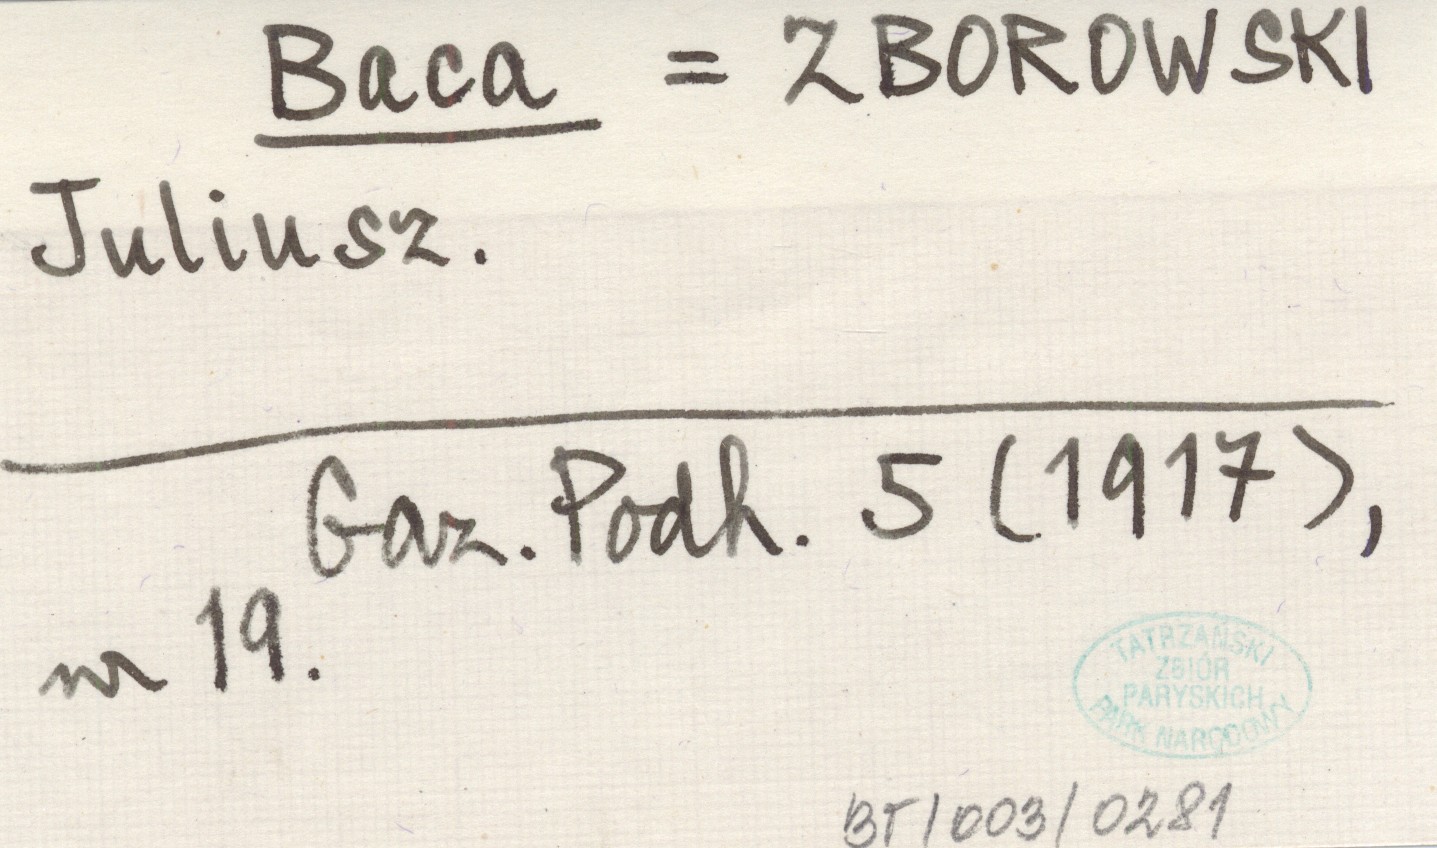 Baca = ZBOROWSKI
Juliusz.
Gaz. Podh. 5 (1917),
nr 19.
TATRZAŃSKI
ZBIÓR
PARYSKICH
PARK NARODOWY
BT/003/0281